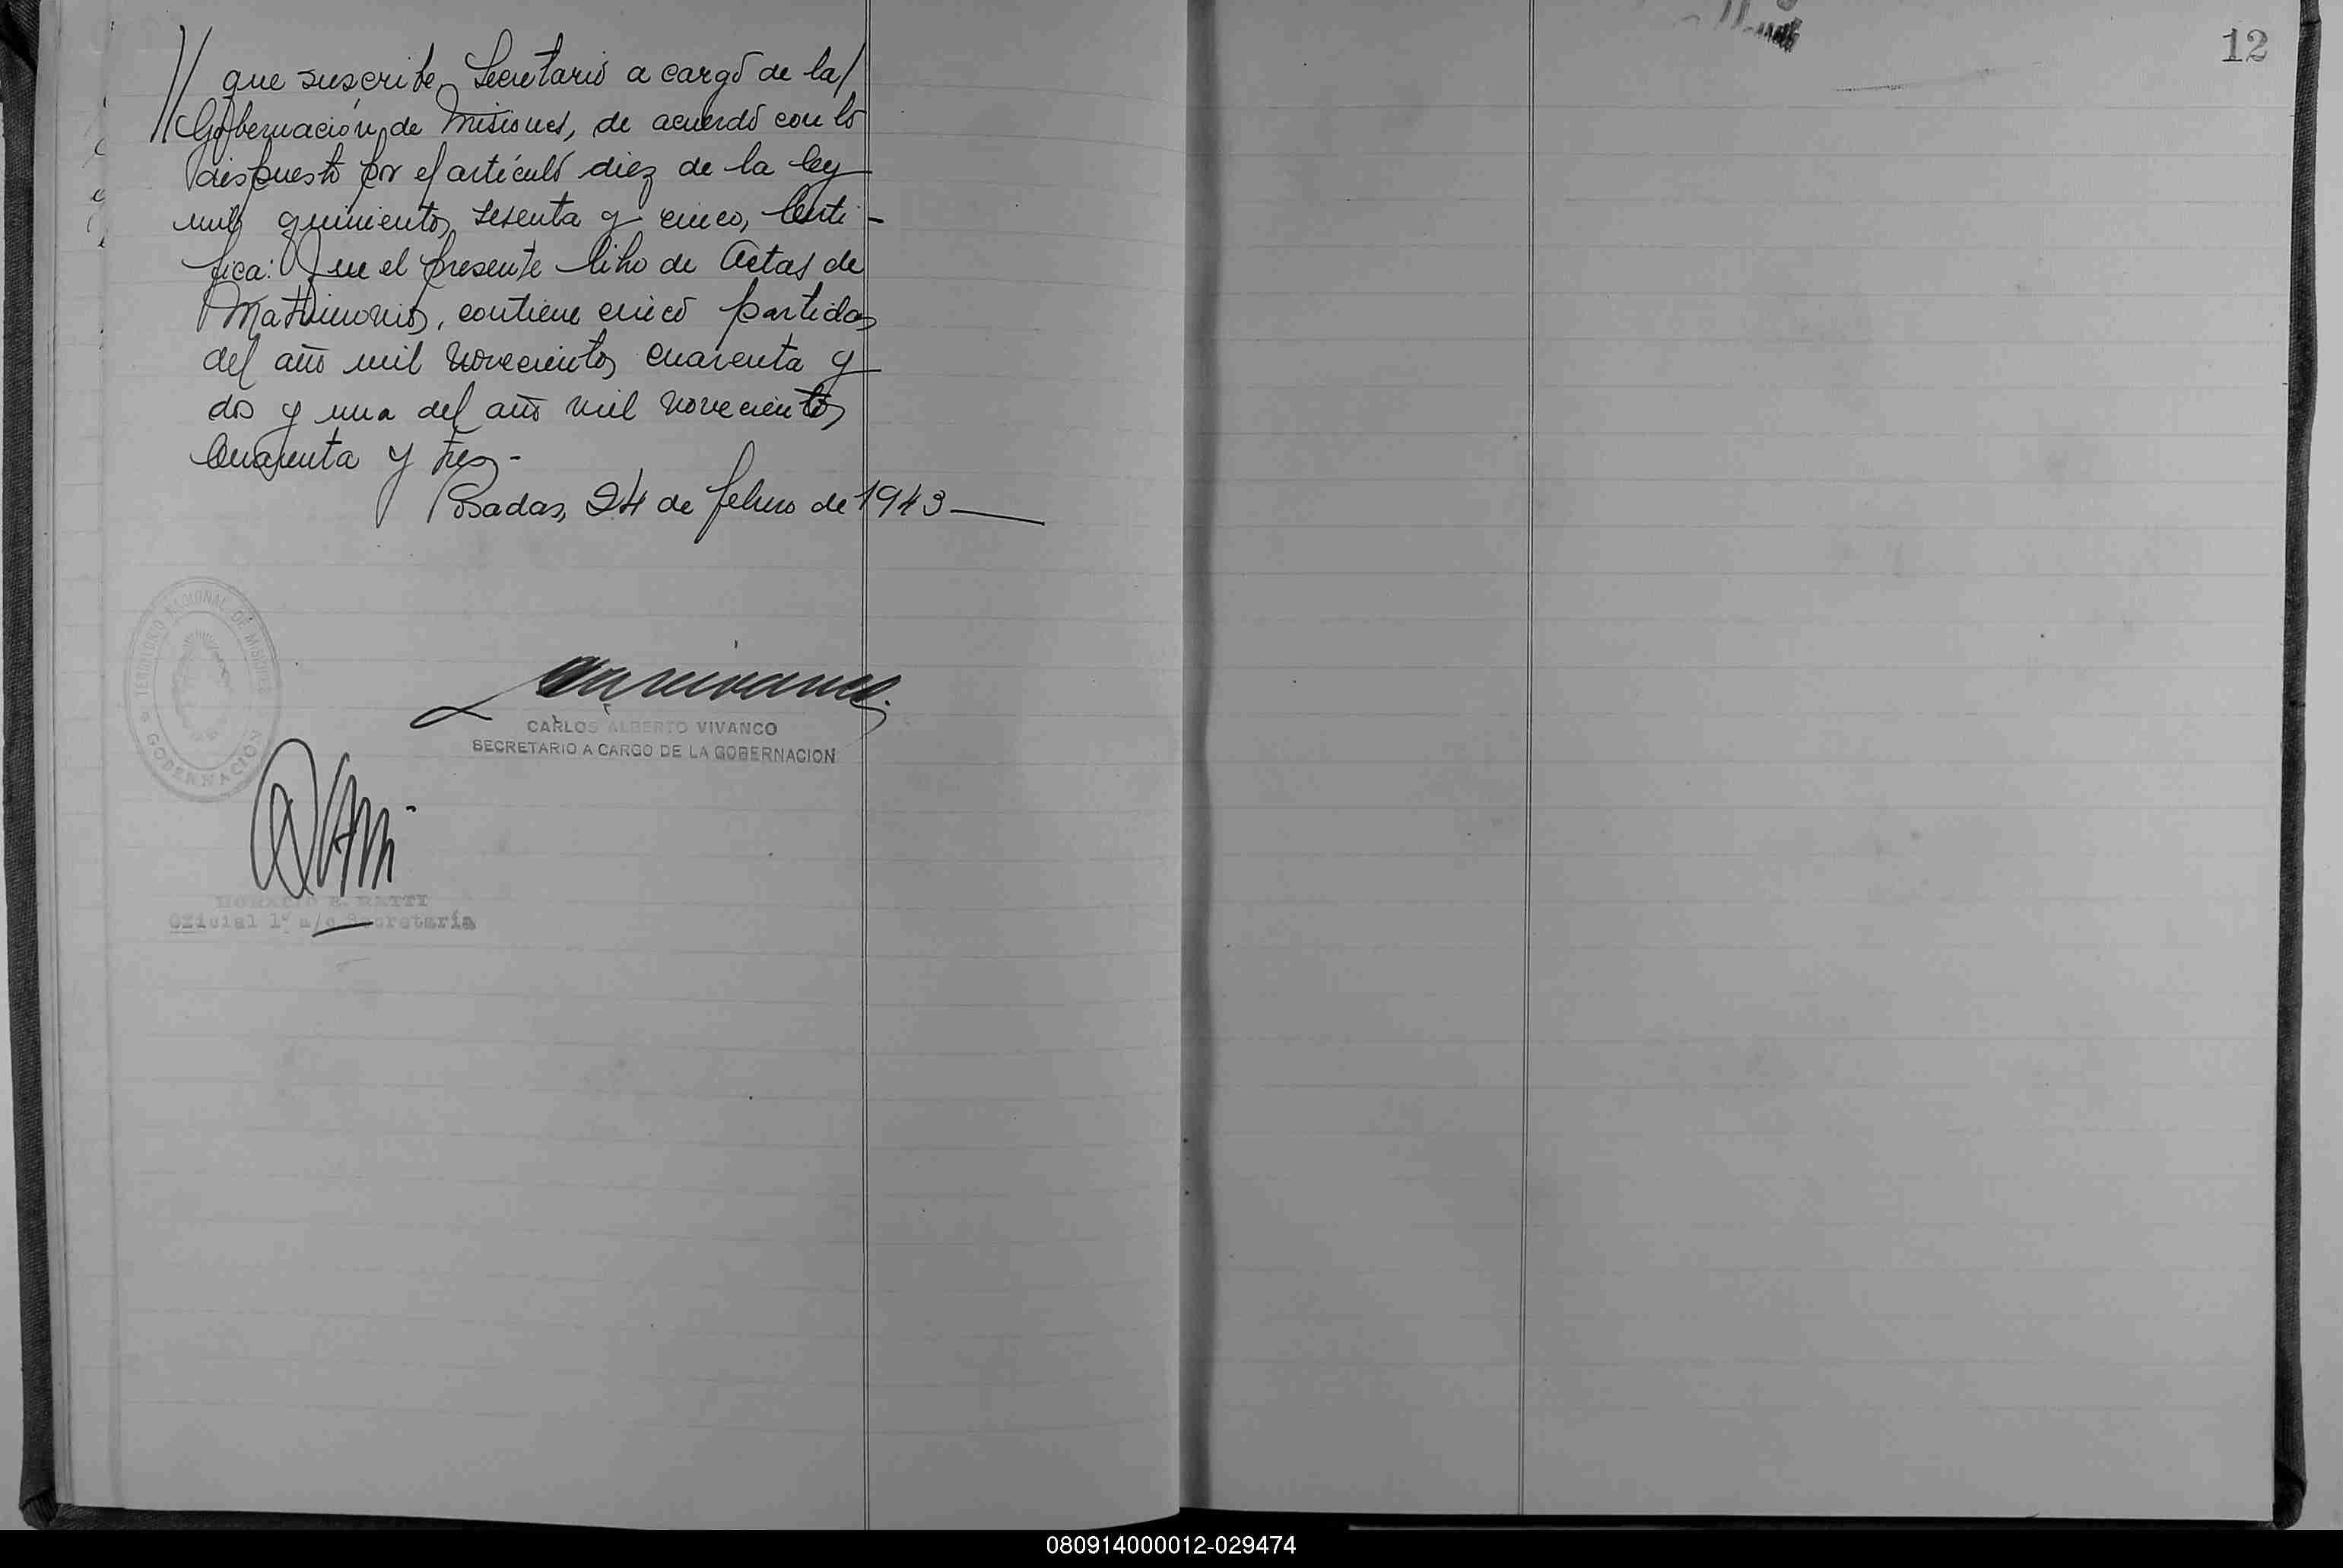 // que suscribe, Secretario a cargo de la/
Gobernación de Misiones, de acuerdo con lo
dispuesto por el artículo diez de la ley
mil quinientos sesenta y cinco, Certi-
fica: Que el presente libro de Actas de
Matrimonios, contiene cinco partidas
del año mil novecientos cuarenta y
dos y una del año mil novecientos
Cuarenta y tres.-
Posadas, 24 de febrero de 1943
TERRITORIO NACIONAL DE MISIONES
GOBERNACION
CARLOS ALBERTO VIVANCO
SECRETARIO A CARGO DE LA GOBERNACION
HORACIO E. RATTI
Oficial 1º a/c Secretaría
12
080914000012-029474